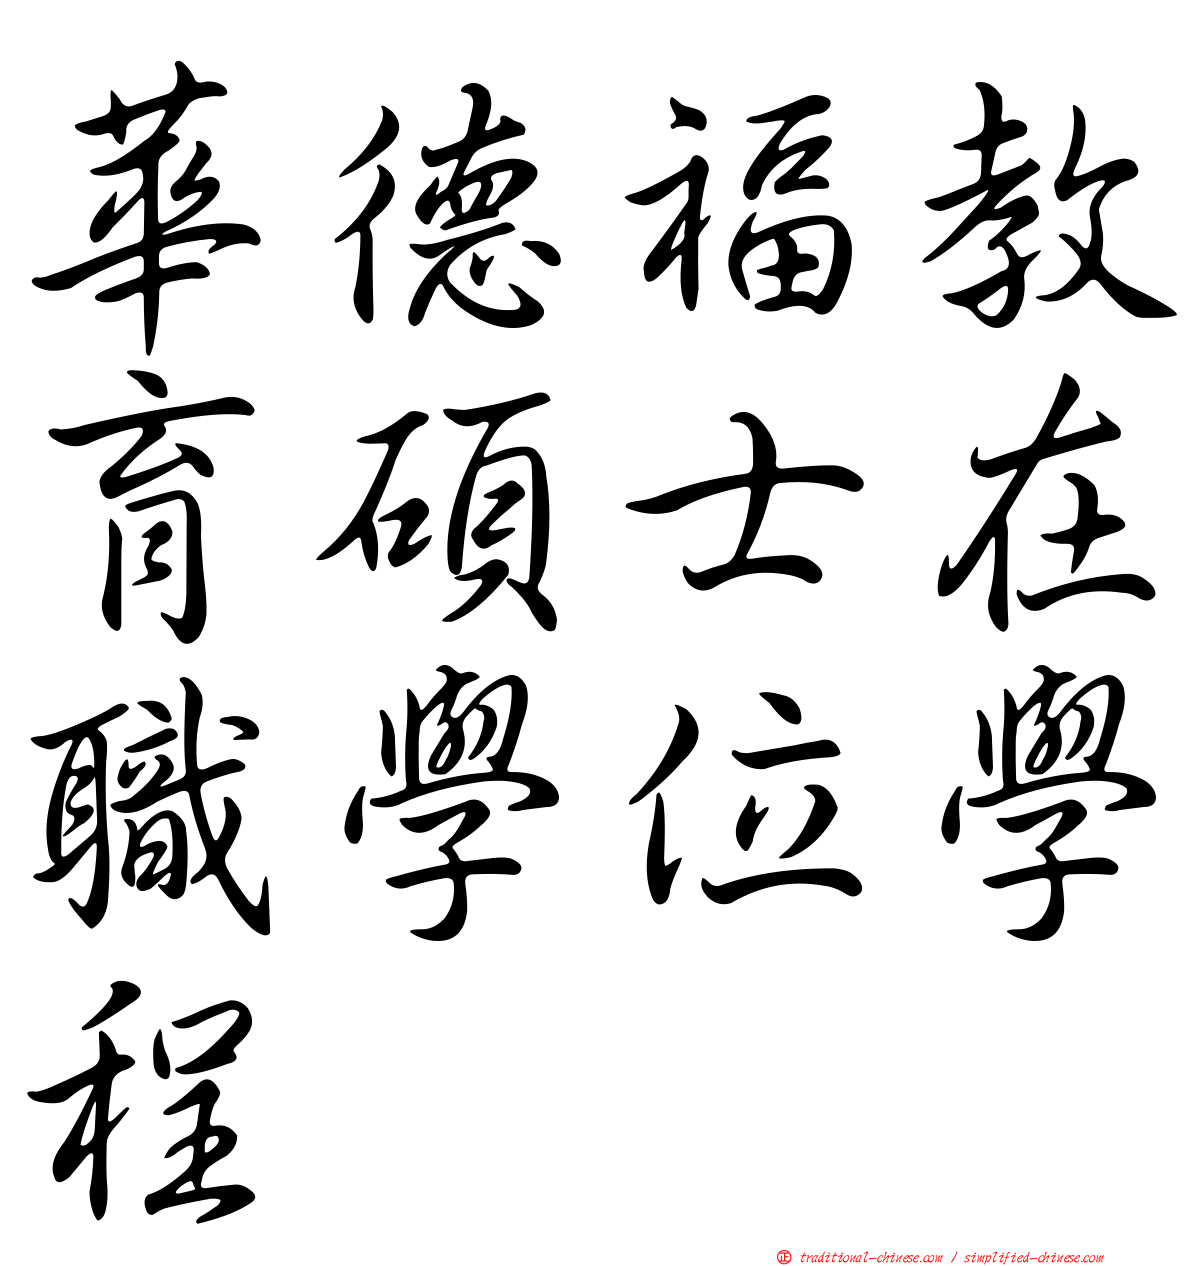 華德福教
育碩士在
職學位學
程
正 traditional-chinese.com / simplified-chinese.com